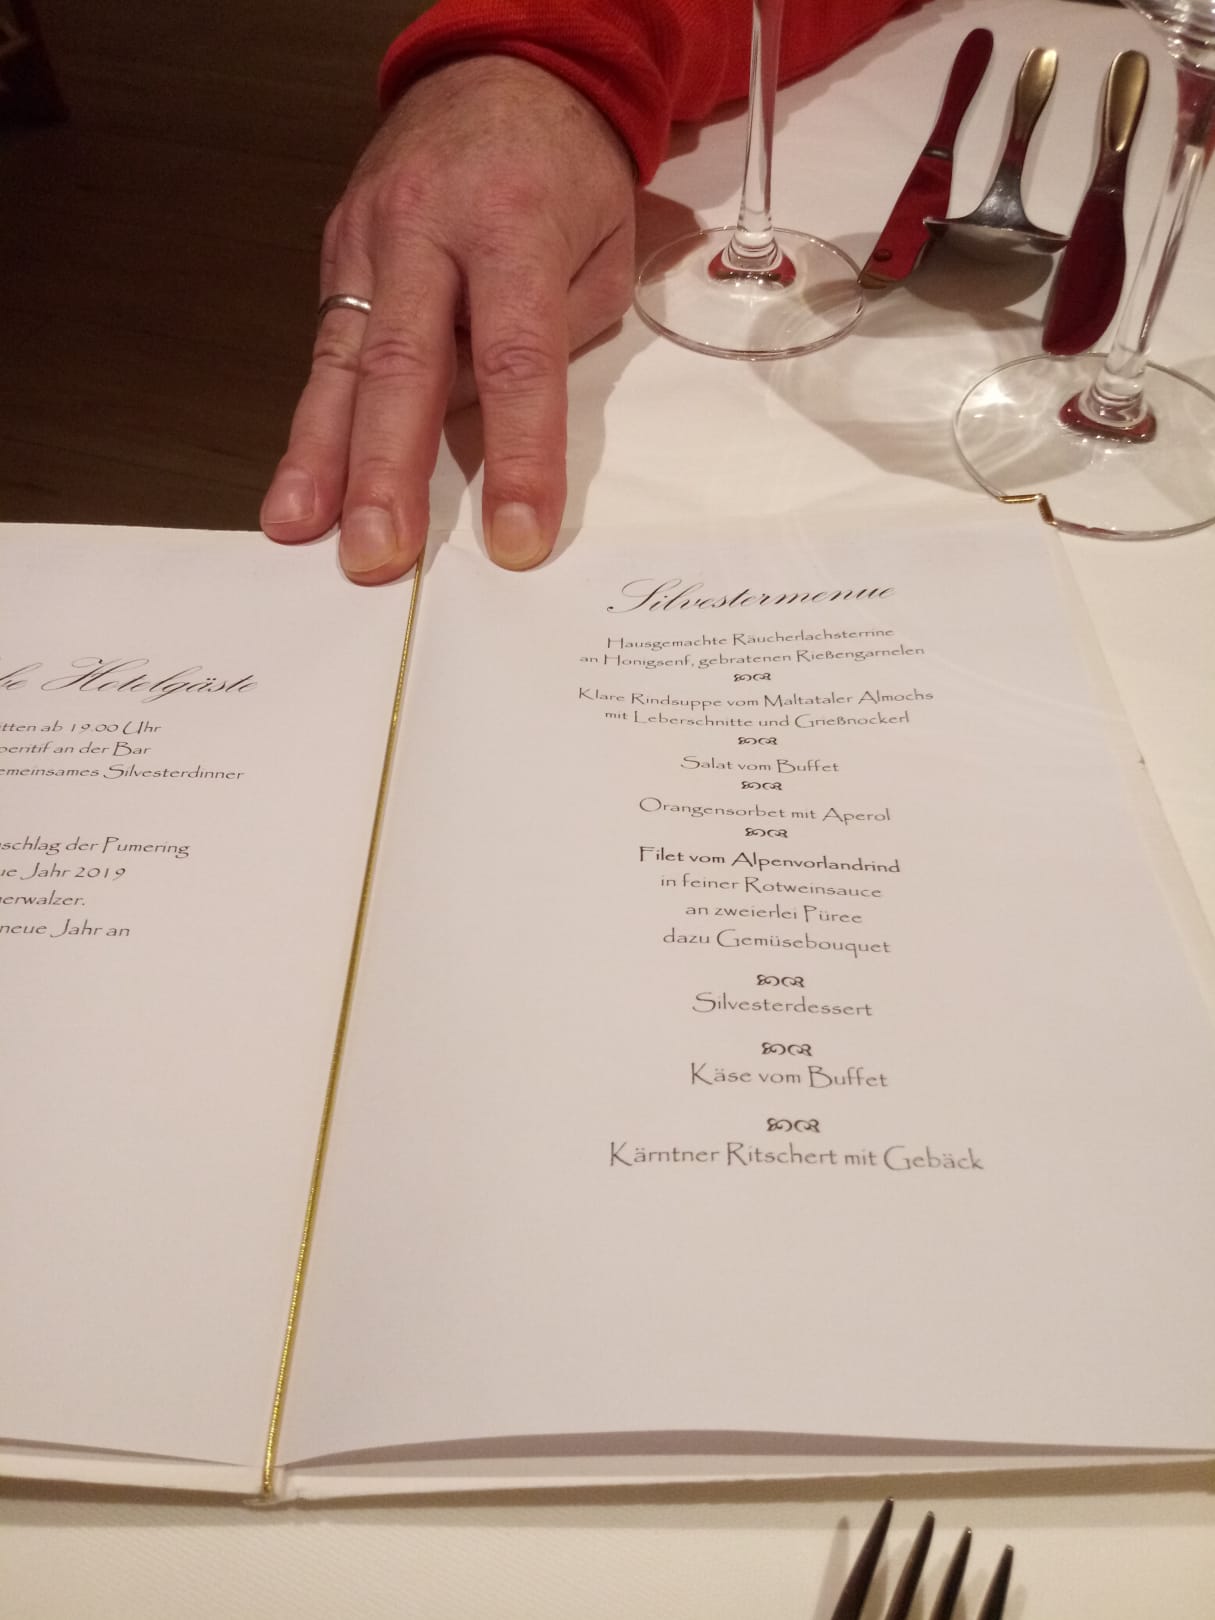 Hotelgäste
ab 19.00 Uhr
an der Bar
Silvesterdinner
der Pumering
Jahr 2019
neue Jahr an
Silvestermenue
Hausgemachte Räucherlachsterrine
an Honigsenf, gebratenen Rießengarnelen
Klare Rindsuppe vom Maltataler Almochs
mit Leberschnitte und Grießnockerl
Salat vom Buffet
Orangensorbet mit Aperol
Filet vom Alpenvorlandrind
in feiner Rotweinsauce
an zweierlei Püree
dazu Gemüsebouquet
Silvesterdessert
Käse vom Buffet
Kärntner Ritschert mit Gebäck